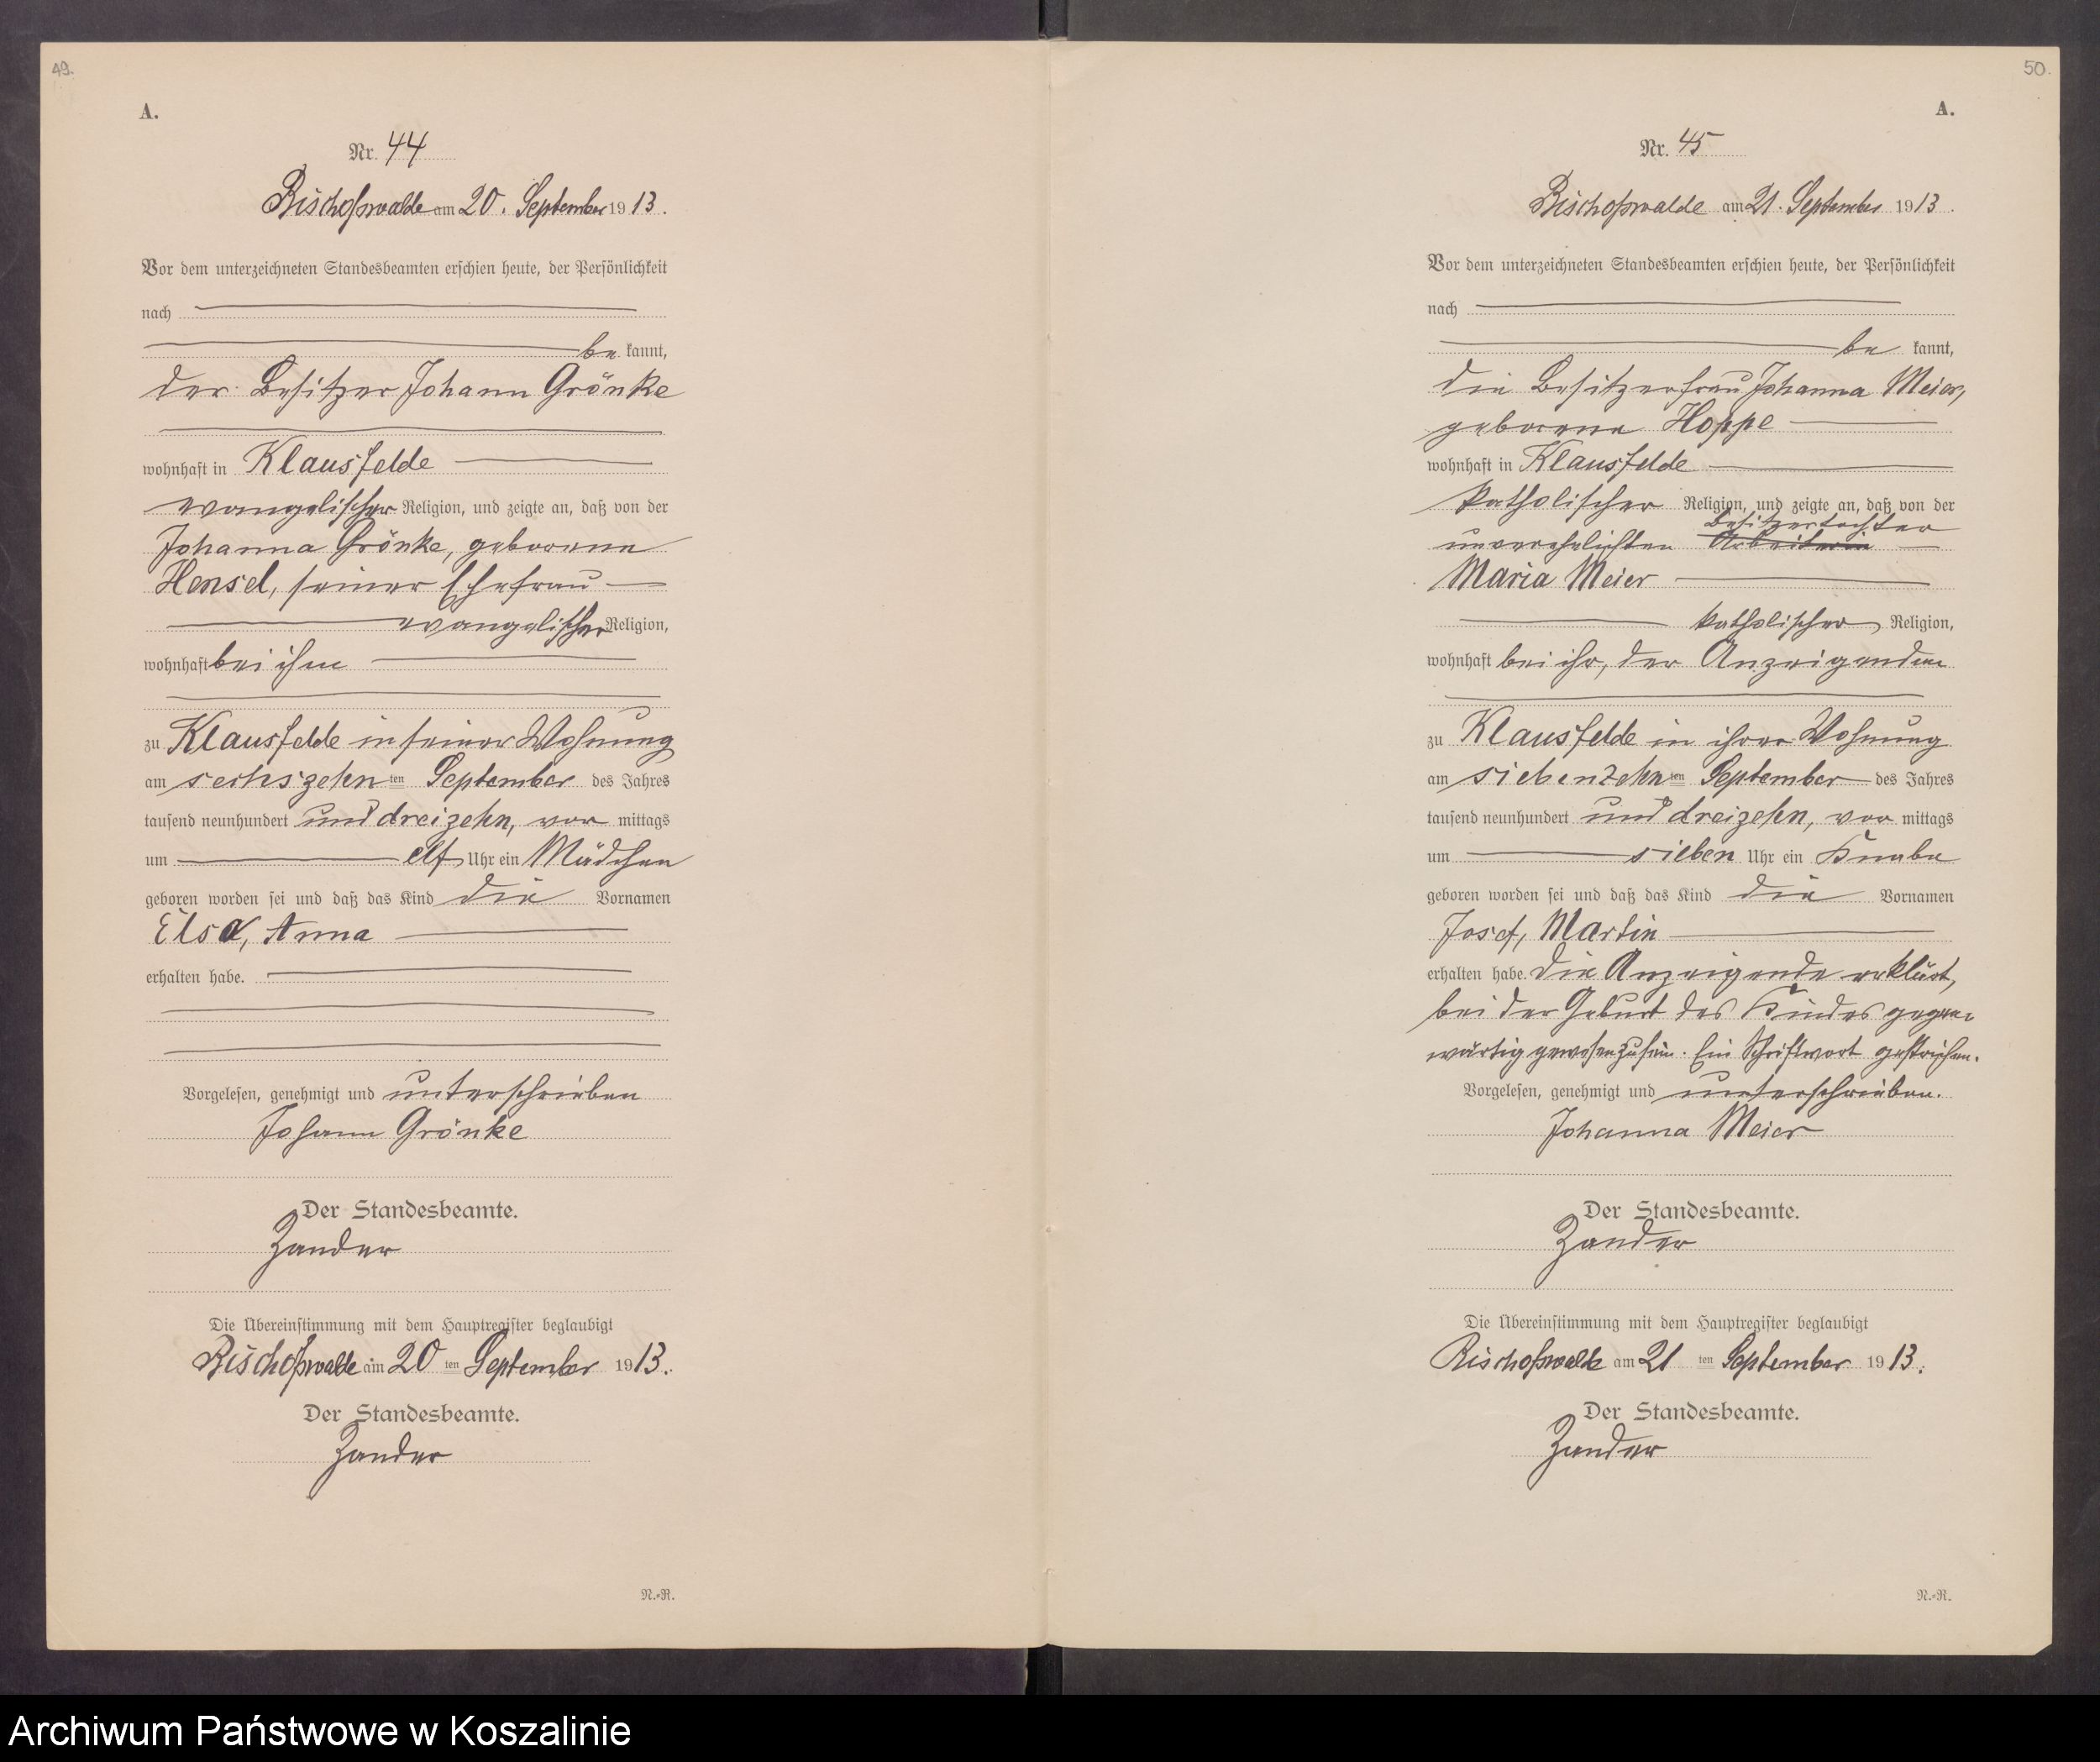 49.
A.
Nr. 44
Bischofswalde am 20. September 1913.
Vor dem unterzeichneten Standesbeamten erschien heute, der Persönlichkeit
nach
be kannt,
der Besitzer Johann Grönke
wohnhaft in Klausfelde
evangelischer Religion, und zeigte an, daß von der
Johanna Grönke, geborene
Hensel, seiner Ehefrau
evangelischer Religion,
wohnhaft bei ihm
zu Klausfelde in seiner Wohnung
am sechszehn ten September des Jahres
tausend neunhundert und dreizehn, vor mittags
um elf Uhr ein Mädchen
geboren worden sei und daß das Kind die Vornamen
Elsa, Anna
erhalten habe.
Vorgelesen, genehmigt und unterschrieben
Johann Grönke
Der Standesbeamte.
Zander
Die Übereinstimmung mit dem Hauptregister beglaubigt
Bischofswalde am 20 ten September 1913.
Der Standesbeamte.
Zander
N.-R.
50.
A.
Nr. 45
Bischofswalde am 21. September 1913.
Vor dem unterzeichneten Standesbeamten erschien heute, der Persönlichkeit
nach
be kannt,
die Besitzerfrau Johanna Meier,
geborene Hoppe
wohnhaft in Klausfelde
katholischer Religion, und zeigte an, daß von der
Besitzertochter
unverehelichten Arbeiterin
Maria Meier
katholischer Religion,
wohnhaft bei ihr, der Anzeigenden
zu Klausfelde in ihrer Wohnung
am siebenzehn ten September des Jahres
tausend neunhundert und dreizehn, vor mittags
um sieben Uhr ein Knabe
geboren worden sei und daß das Kind die Vornamen
Josef, Martin
erhalten habe. Die Anzeigende erklärt,
bei der Geburt des Kindes gegen-
wärtig gewesen zu sein. Ein Schriftwort gestrichen.
Vorgelesen, genehmigt und unterschrieben.
Johanna Meier
Der Standesbeamte.
Zander
Die Übereinstimmung mit dem Hauptregister beglaubigt
Bischofswalde am 21 ten September 1913.
Der Standesbeamte.
Zander
N.-R.
Archiwum Państwowe w Koszalinie